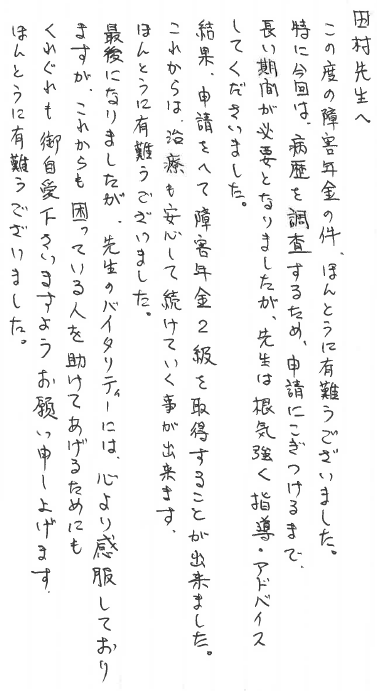 田村先生へ
この度の障害年金の件、ほんとうに有難うございました。
特に今回は、病歴を調査するため、申請にこぎつけるまで、
長い期間が必要となりましたが、先生は根気強く指導・アドバイス
してくださいました。
結果、申請をへて障害年金2級を取得することが出来ました。
これからは、治療も安心して続けていく事が出来ます。
ほんとうに有難うございました。
最後になりましたが、先生のバイタリティーには、心より感服しており
ますが、これからも困っている人を助けてあげるためにも
くれぐれも御自愛下さいますようお願い申し上げます。
ほんとうに有難うございました。